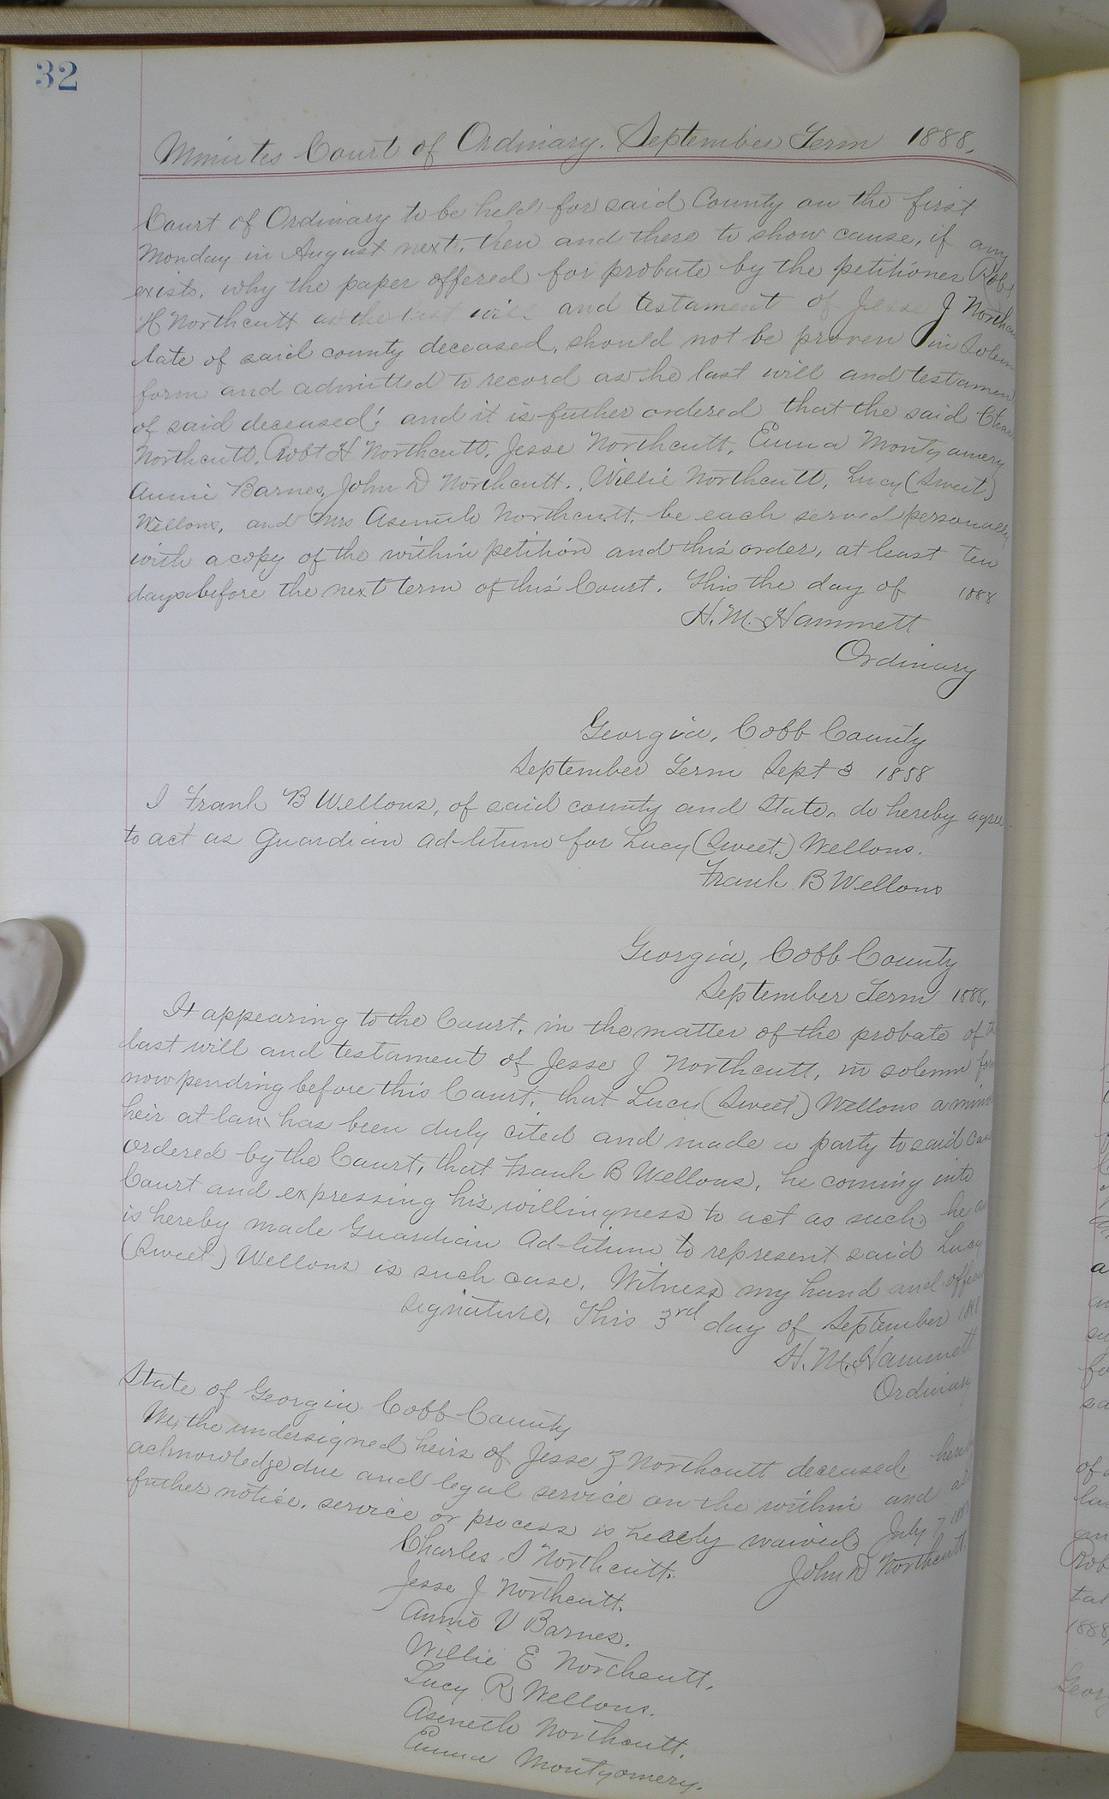 32
Minutes Court of Ordinary. September Term 1888.
Court of Ordinary to be held for said County on the first
Monday in August next, then and there to show cause, if any
exists, why the paper offered for probate by the petitioner Robt
H Northcutt as the last will and testament of Jesse J Northcu
late of said county deceased, should not be proven in Solem
form and admitted to record as he last will and testamen
of said deceased; and it is futher ordered that the said Chas
Northcutt, Robt H Northcutt, Jesse Northcutt, Emma Montgomery
Annie Barnes, John D Northcutt, Willie Northcutt, Lucy (Sweet)
Wellons, and Mrs Aseneth Northcutt, be each served personally
with a copy of the within petition and this order, at least ten
days before the next term of this Court. This the day of 1888
H. M. Hammett
Ordinary
Georgia, Cobb County
September Term Sept 3 1888
I Frank B Wellons, of said county and State, do hereby agree
to act as Guardian ad-litum for Lucy (Sweet) Wellons.
Frank B Wellons
Georgia, Cobb County
September Term 1888.
It appearing to the Court, in the matter of the probate of th
last will and testament of Jesse J Northcutt, in solemn form
now pending before this Court, that Lucy (Sweet) Wellons a mino
heir at law has been duly cited and made a party to said cas
ordered by the Court, that Frank B Wellons, he coming into
Court and expressing his willingness to act as such, he
is hereby made Guardian Ad-litum to represent said Lucy
(Sweet) Wellons is such case. Witness my hand and offici
signature. This 3rd day of September 188
H. M. Hammett
Ordinary
State of Georgia Cobb County
We, the undersigned heirs of Jesse J Northcutt deceased, hereby
acknowledge due and legal service on the within and al
futher notice, service or process is hereby waived July 7 188
Charles I Northcutt. John D Northcutt.
Jesse J Northcutt.
Annie V Barnes.
Willie E Northcutt.
Lucy R Wellons.
Aseneth Northcutt.
Emma Montgomery.